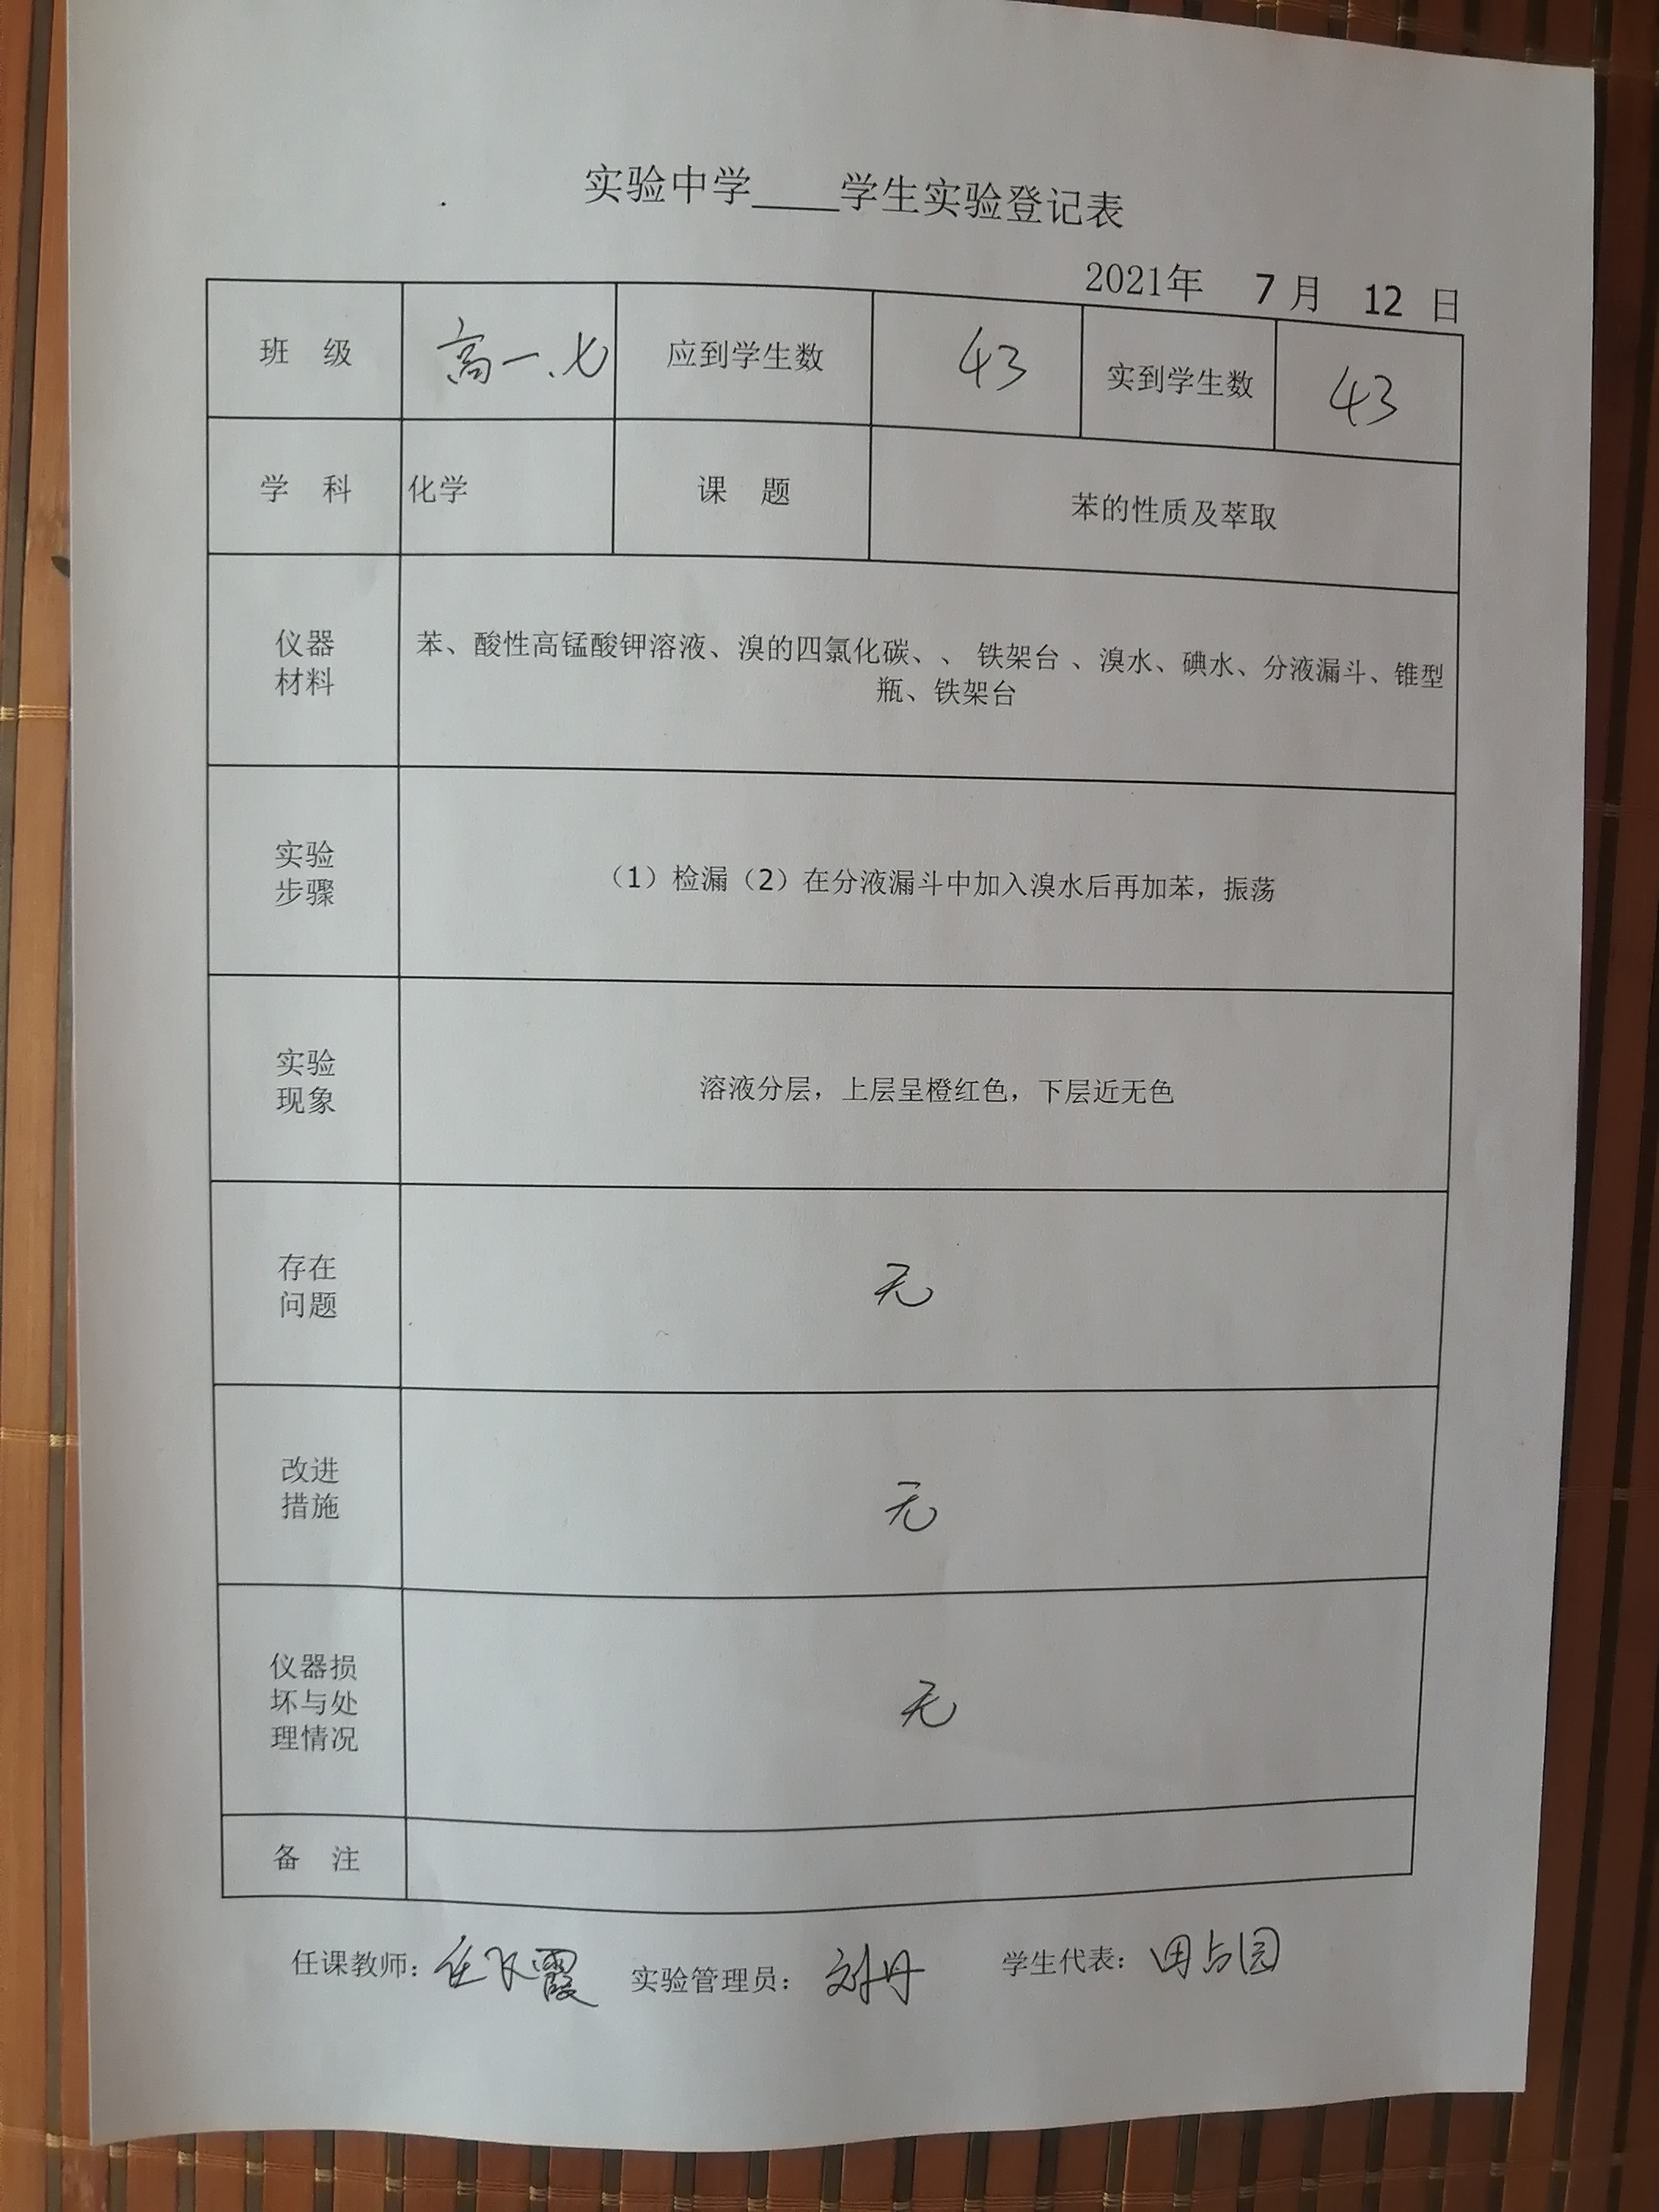 实验中学____学生实验登记表
2021年 7 月 12 日
班 级 高一.七 应到学生数 43 实到学生数 43
学 科 化学 课 题 苯的性质及萃取
仪器
材料
苯、酸性高锰酸钾溶液、溴的四氯化碳、、 铁架台 、溴水、碘水、分液漏斗、锥型
瓶、铁架台
实验
步骤
（1）检漏（2）在分液漏斗中加入溴水后再加苯，振荡
实验
现象
溶液分层，上层呈橙红色，下层近无色
存在
问题
无
改进
措施
无
仪器损
坏与处
理情况
无
备 注
任课教师： 实验管理员： 刘丹 学生代表：